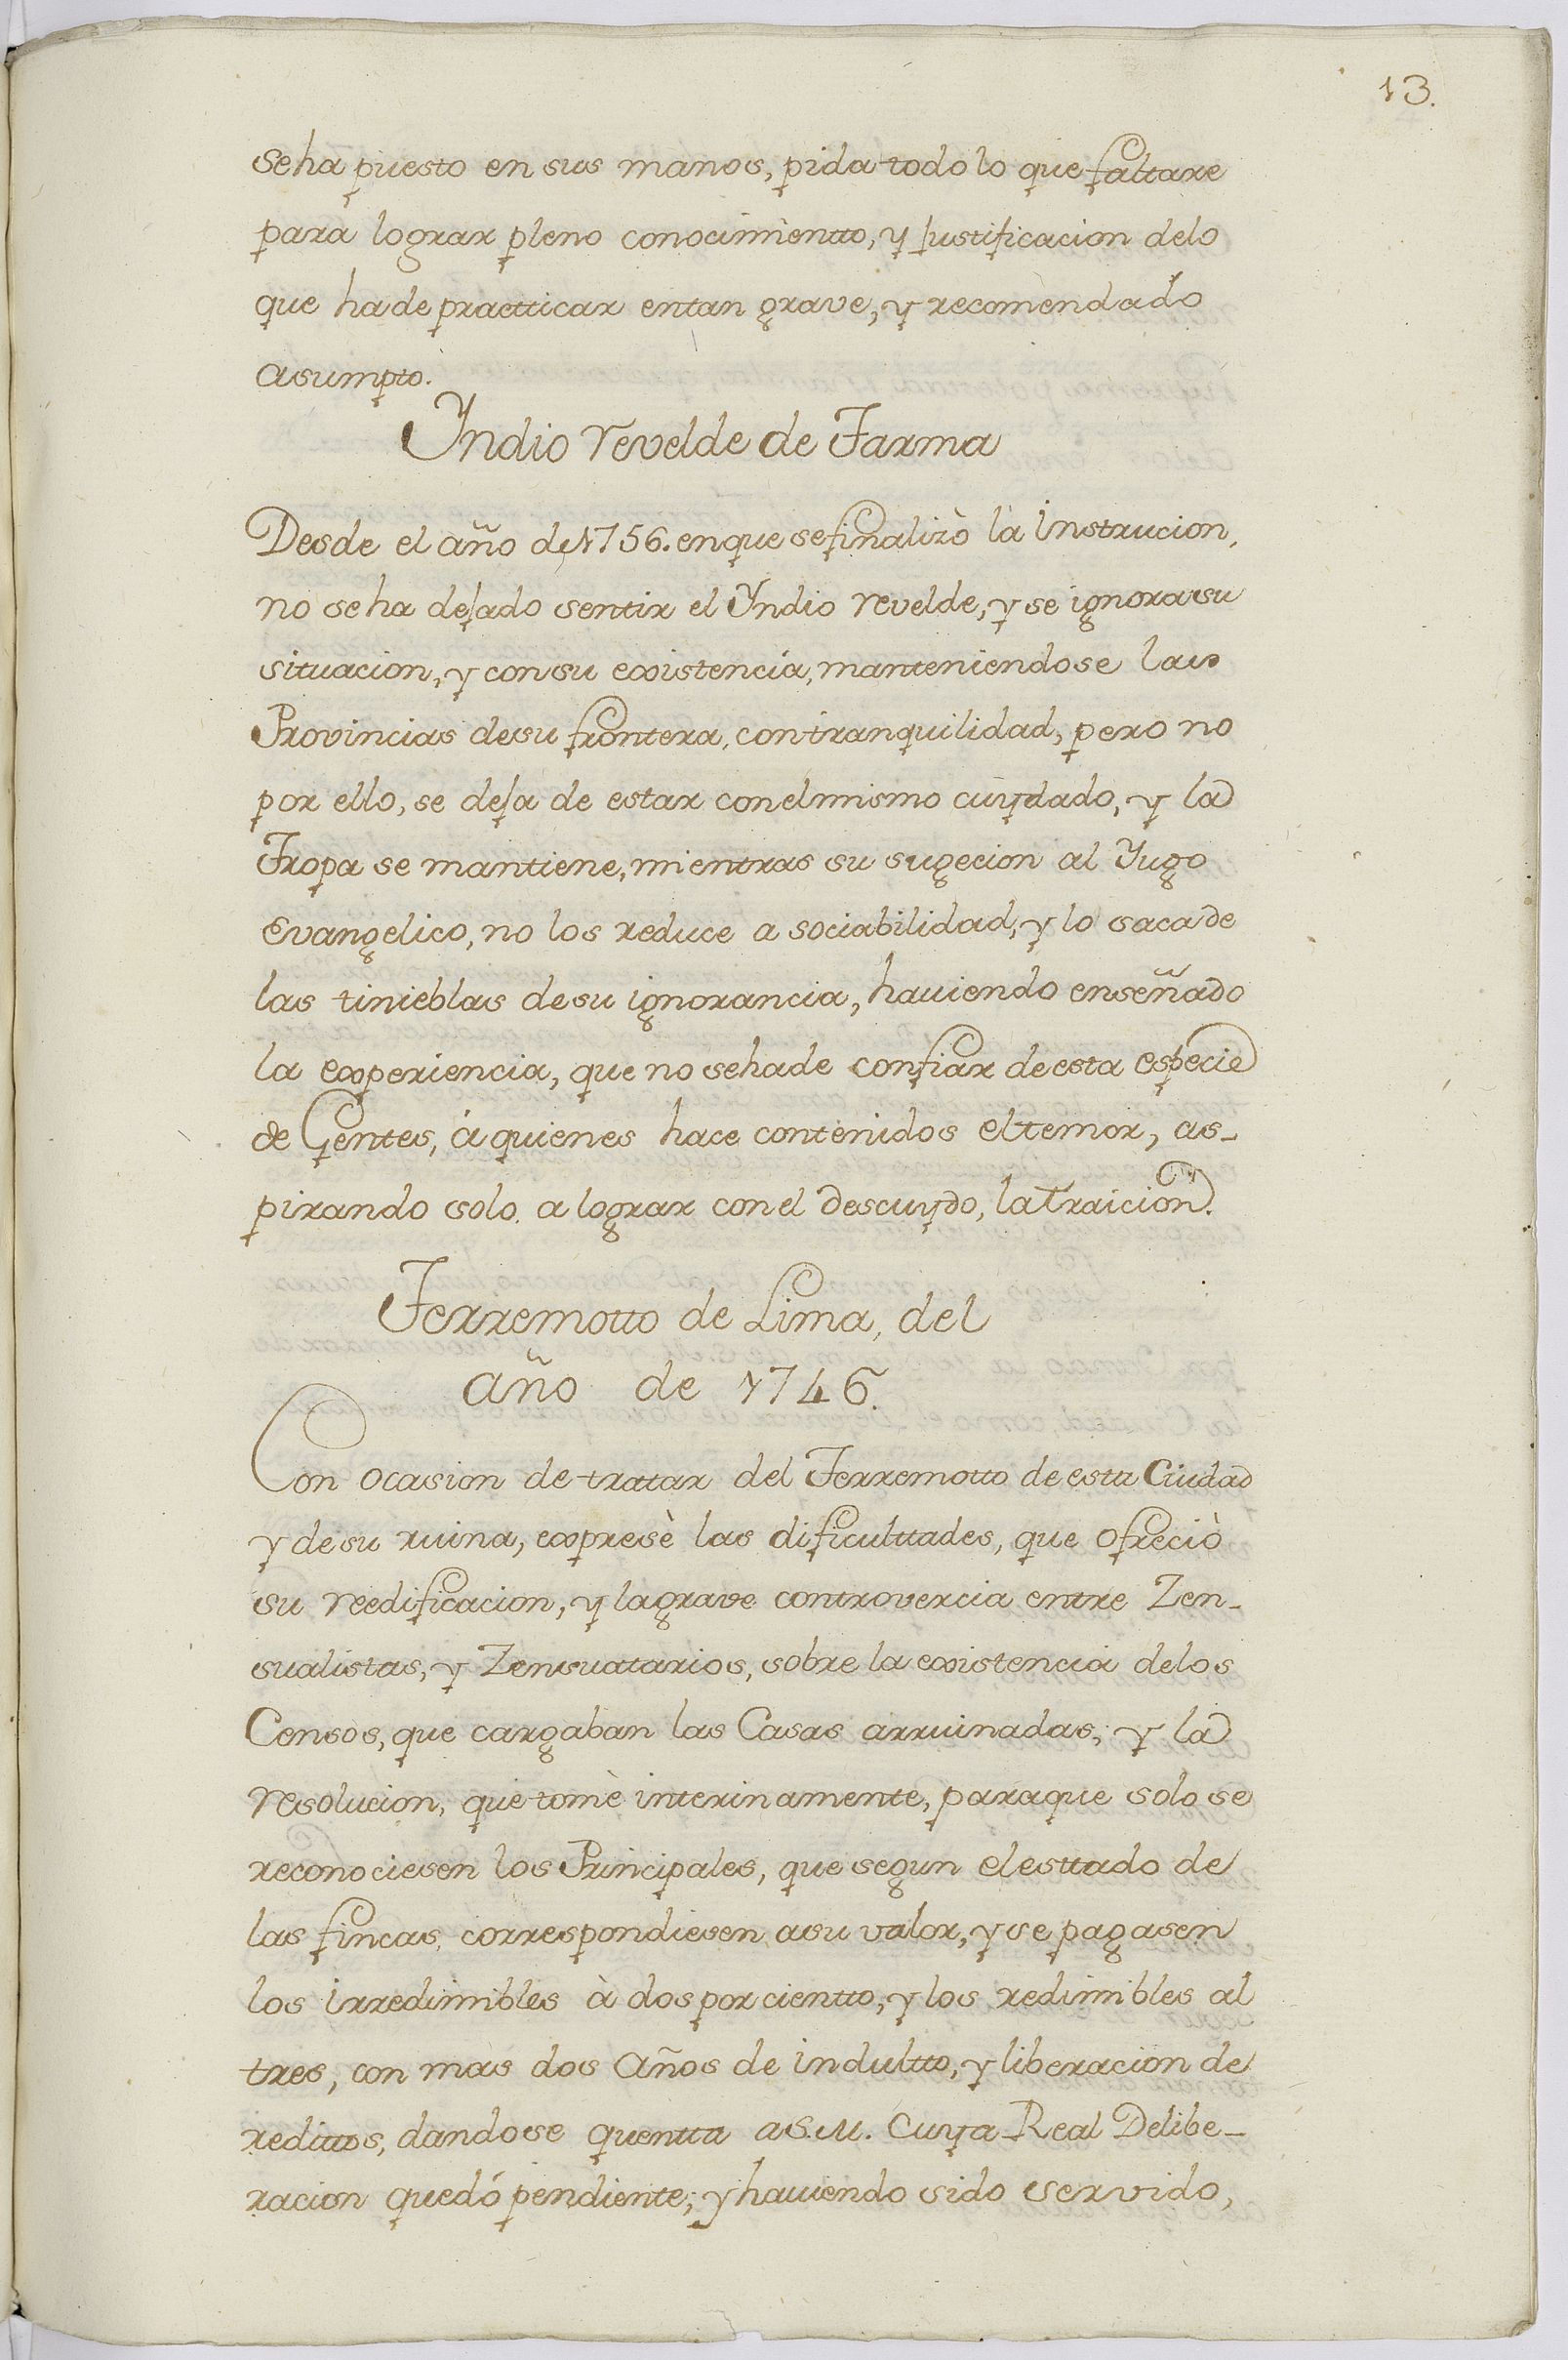 13.
se ha puesto en sus manos, pida todo lo que faltare
para lograr pleno conocimientto, y Justificacion delo
que ha de practticar entan grave, y recomendado
asumpto.
Yndio revelde de Tarma
Desde el año de 1756. enque se finalizò la Instrucion,
no se ha dejado sentir el Yndio revelde, y se ignora su
situacion, y con su existencia, manteniendose las
Provincias desu frontera, con tranquilidad, pero no
por ello, se deja de estar conelmismo cuydado, y la
Tropa se mantiene, mientras su sugecion al Yugo
Evangelico, no los reduce a sociabilidad, y lo saca de
las tinieblas desu ignorancia, haviendo enseñado
la experiencia, que no sehade confiar de esta especie
de Gentes, á quienes hace contenidos eltemor, as-
pirando solo a lograr con el descuydo, la traicion.
Terremotto de Lima, del
año de 1746.
Con ocasion de tratar del Terremotto de esta Ciudad
y desu ruina, expresè las dificulttades, que ofreciò
su reedificacion, y la grave controvercia entre Zen-
sualistas, y Zensuatarios, sobre la existencia delos
Censos, que cargaban las Casas arruinadas; y la
resolucion, que tomè interinamente, paraque solo se
reconociesen los Principales, que segun elesttado de
las fincas, correspondiesen asu valor, y se pagasen
los irredimibles à dos por cientto, y los redimibles al
tres, con mas dos Años de indultto, y liberacion de
redittos, dandose quentta a S. M. Cuya Real Delibe-
racion quedó pendiente; y haviendo sido servido,